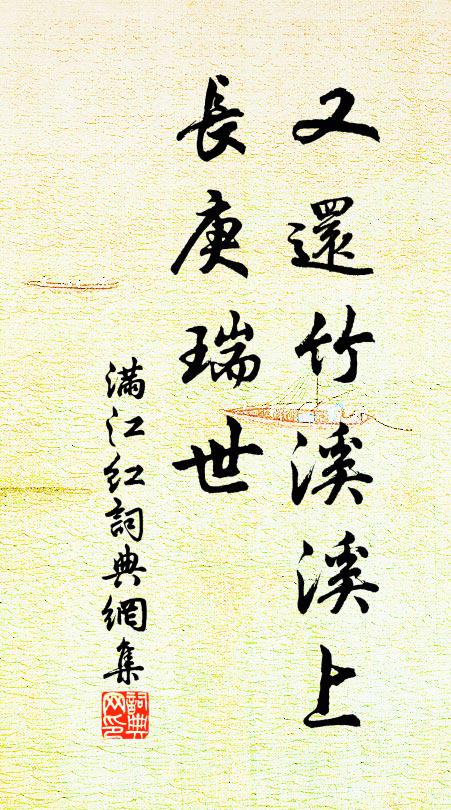 又還竹溪溪上
長庚瑞世
滿江红詞典網集
詞典
网印